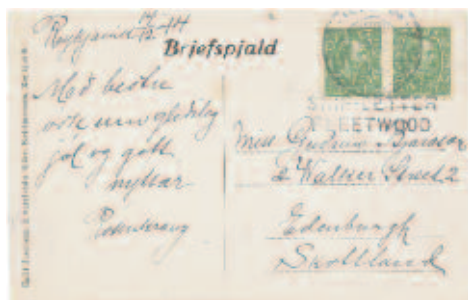 Reykjavik 14/12-44
Bréfspjald
Með bestu
ósk um gleðileg
jól og gott
nýttár
SHIP LETTER
FLEETWOOD
Miss Guðrun
Walker Street 2
Edenburgh
Skottland